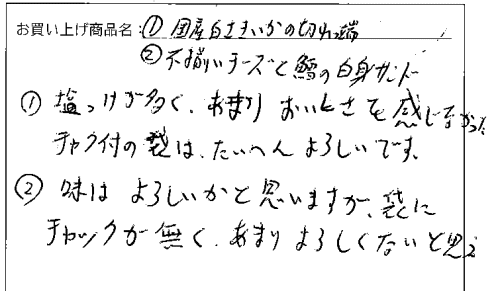 お買い上げ商品名:① 国産白さきいかの切れ端
② 不揃いチーズと鱈の白身サンド
① 塩っけが多く、あまりおいしさを感じなかった
チャク付の袋は、たいへんよろしいです。
② 味はよろしいかと思いますが、袋に
チャックが無く、あまりよろしくないと思う